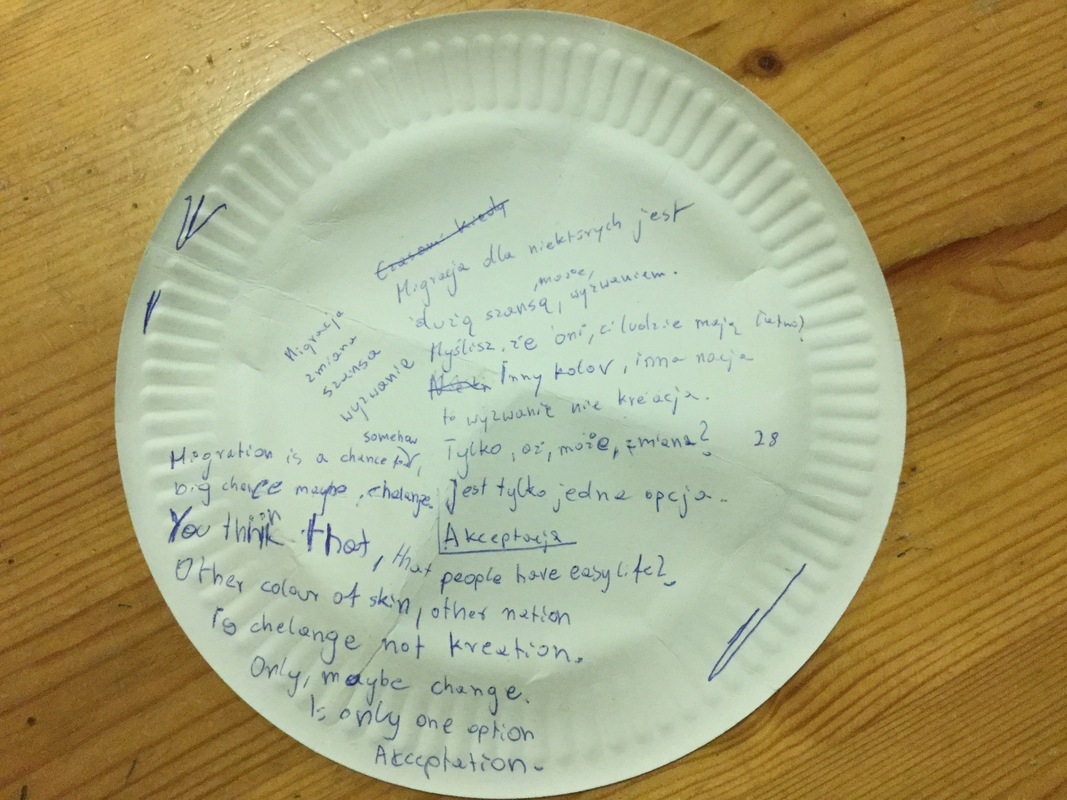 Czasami kiedy
Migracja dla niektórych jest
dużą szansą, może, wyzwaniem.
Myślisz, że oni, ci ludzie mają łatwo?
Inny kolor, inna nacja
to wyzwanie nie kreacja.
Tylko, aż, może, zmiana?
28
Jest tylko jedna opcja.
Akceptacja
Migracja
zmiana
szansa
wyzwanie
Migration is a chance for, somehow
big chance maybe, chelange.
You think that, that people have easy life?
Other colour of skin, other nation
Is chelange not kreation.
Only, maybe change.
Is only one option
Akceptation.